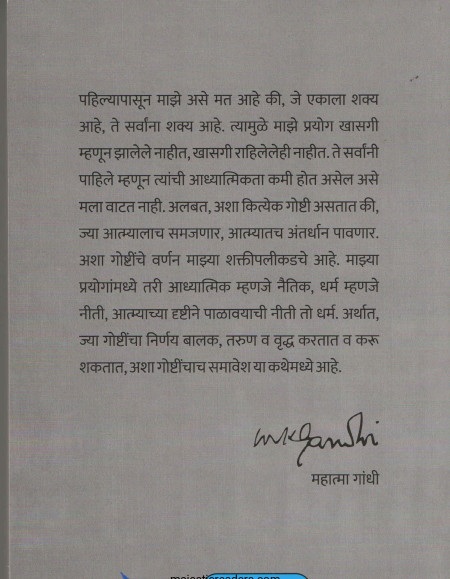 पहिल्यापासून माझे असे मत आहे की, जे एकाला शक्य
आहे, ते सर्वांना शक्य आहे. त्यामुळे माझे प्रयोग खासगी
म्हणून झालेले नाहीत, खासगी राहिलेलेही नाहीत. ते सर्वांनी
पाहिले म्हणून त्यांची आध्यात्मिकता कमी होत असेल असे
मला वाटत नाही. अलबत, अशा कित्येक गोष्टी असतात की,
ज्या आत्म्यालाच समजणार, आत्म्यातच अंतर्धान पावणार.
अशा गोष्टींचे वर्णन माझ्या शक्तीपलीकडचे आहे. माझ्या
प्रयोगांमध्ये तरी आध्यात्मिक म्हणजे नैतिक, धर्म म्हणजे
नीती, आत्म्याच्या दृष्टीने पाळावयाची नीती तो धर्म. अर्थात,
ज्या गोष्टींचा निर्णय बालक, तरुण व वृद्ध करतात व करू
शकतात, अशा गोष्टींचाच समावेश या कथेमध्ये आहे.
MKGandhi
महात्मा गांधी